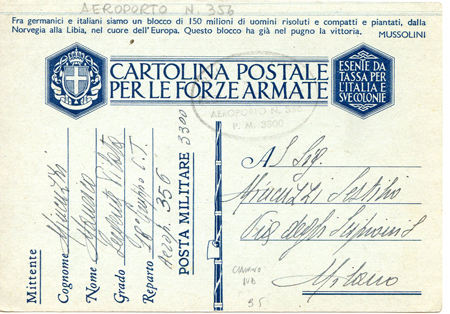 AEROPORTO N. 356
Fra germanici e italiani siamo un blocco di 150 milioni di uomini risoluti e compatti e piantati, dalla
Norvegia alla Libia, nel cuore dell'Europa. Questo blocco ha già nel pugno la vittoria. MUSSOLINI
CARTOLINA POSTALE
PER LE FORZE ARMATE
ESENTE DA
TASSA PER
L'ITALIA E
SVE COLONIE
AEROPORTO N.
P. M. 3300
Mittente
Cognome
Nome
Grado Pilota
Reparto Gruppo C.T.
Aerop. 356
POSTA MILITARE 3300
Al Sig.
Via degli
Milano